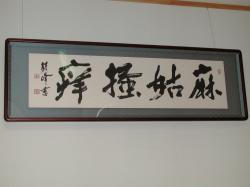 麻姑搔痒